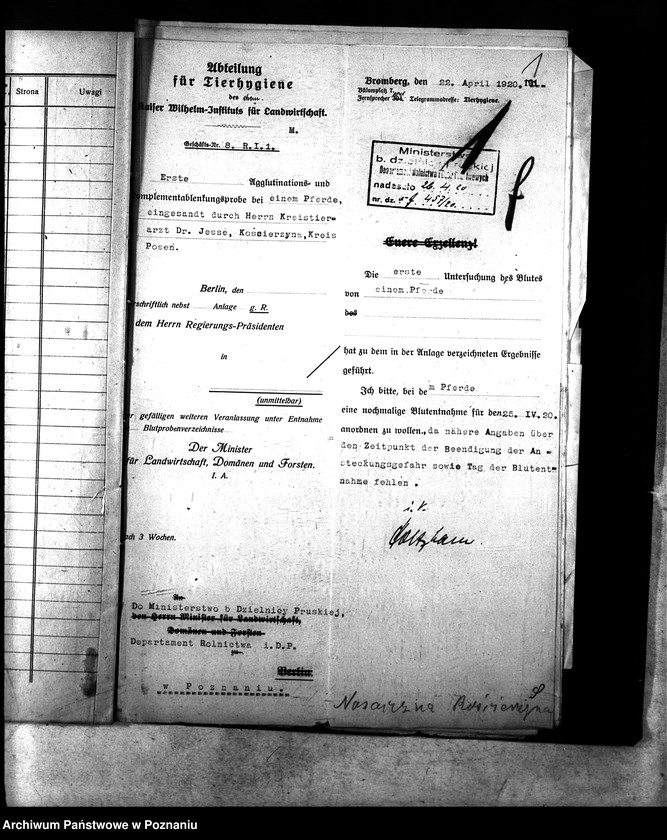 Strona
Uwagi
Abteilung
für Tierhygiene
des ehem.
Kaiser Wilhelm-Instituts für Landwirtschaft.
M.
Geschäfts-Nr. 8. R.I.1.
Erste Agglutinations- und
omplementablenkungsprobe bei einem Pferde,
eingesandt durch Herrn Kreistier=
arzt Dr. Jesse, Kościerzyna, Kreis
Posen.
Berlin, den
rschriftlich nebst Anlage g. R.
dem Herrn Regierungs-Präsidenten
in
(unmittelbar)
r gefälligen weiteren Veranlassung unter Entnahme
Blutprobenverzeichnisse
Der Minister
für Landwirtschaft, Domänen und Forsten.
I. A.
ach 3 Wochen.
An
Do Ministerstwo b Dzielnicy Pruskiej,
den Herrn Minister für Landwirtschaft,
Domänen und Forsten
Departament Rolnictwa i.D.P.
zu
Berlin.
w Poznaniu.
1
Bromberg, den 22. April 1920. 191
Bülowplatz
Fernsprecher Telegrammadresse: Tierhygiene.
Ministerstwo
b. dzielnicy Pruskiej
nadeszło 26.4.20
nr. dz. 457/20
f
Euere Exzellenz!
Die erste Untersuchung des Blutes
von einem Pferde
des
hat zu dem in der Anlage verzeichneten Ergebnisse
geführt.
Ich bitte, bei dem Pferde
eine nochmalige Blutentnahme für den 25. IV. 20.
anordnen zu wollen., da nähere Angaben über
den Zeitpunkt der Beendigung der An =
steckungsgefahr sowie Tag der Blutent=
nahme fehlen .
i. V.
Kościerzyna
Archiwum Państwowe w Poznaniu